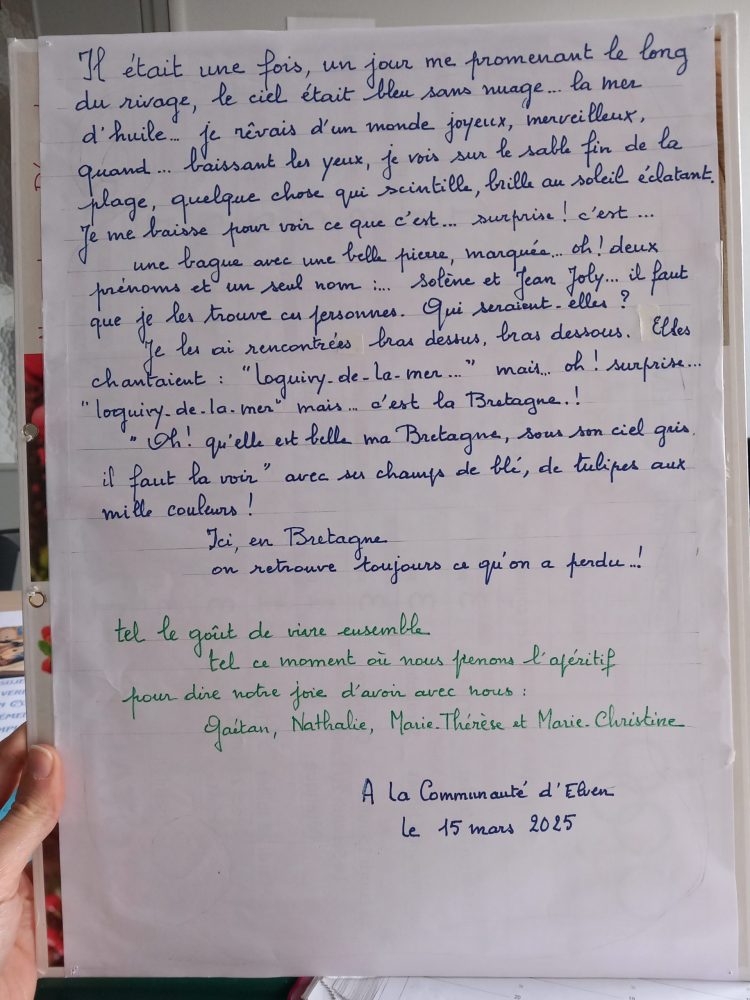 Il était une fois, un jour me promenant le long
du rivage, le ciel était bleu sans nuage... la mer
d'huile... je rêvais d'un monde joyeux, merveilleux,
quand... baissant les yeux, je vois sur le sable fin de la
plage, quelque chose qui scintille, brille au soleil éclatant.
Je me baisse pour voir ce que c'est... surprise ! c'est...
une bague avec une belle pierre, marquée... oh ! deux
prénoms et un seul nom :... Solène et Jean Joly... il faut
que je les trouve ces personnes. Qui seraient-elles ?
Je les ai rencontrées bras dessus, bras dessous. Elles
chantaient : "Loguivy-de-la-mer..." mais... oh ! surprise...
"Loguivy-de-la-mer" mais... c'est la Bretagne.!
"Oh! qu'elle est belle ma Bretagne, sous son ciel gris.
il faut la voir" avec ses champs de blé, de tulipes aux
mille couleurs !
Ici, en Bretagne
on retrouve toujours ce qu'on a perdu...!
tel le goût de vivre ensemble
tel ce moment où nous prenons l'apéritif
pour dire notre joie d'avoir avec nous :
Gaétan, Nathalie, Marie-Thérèse et Marie-Christine
A la Communauté d'Elven
le 15 mars 2025